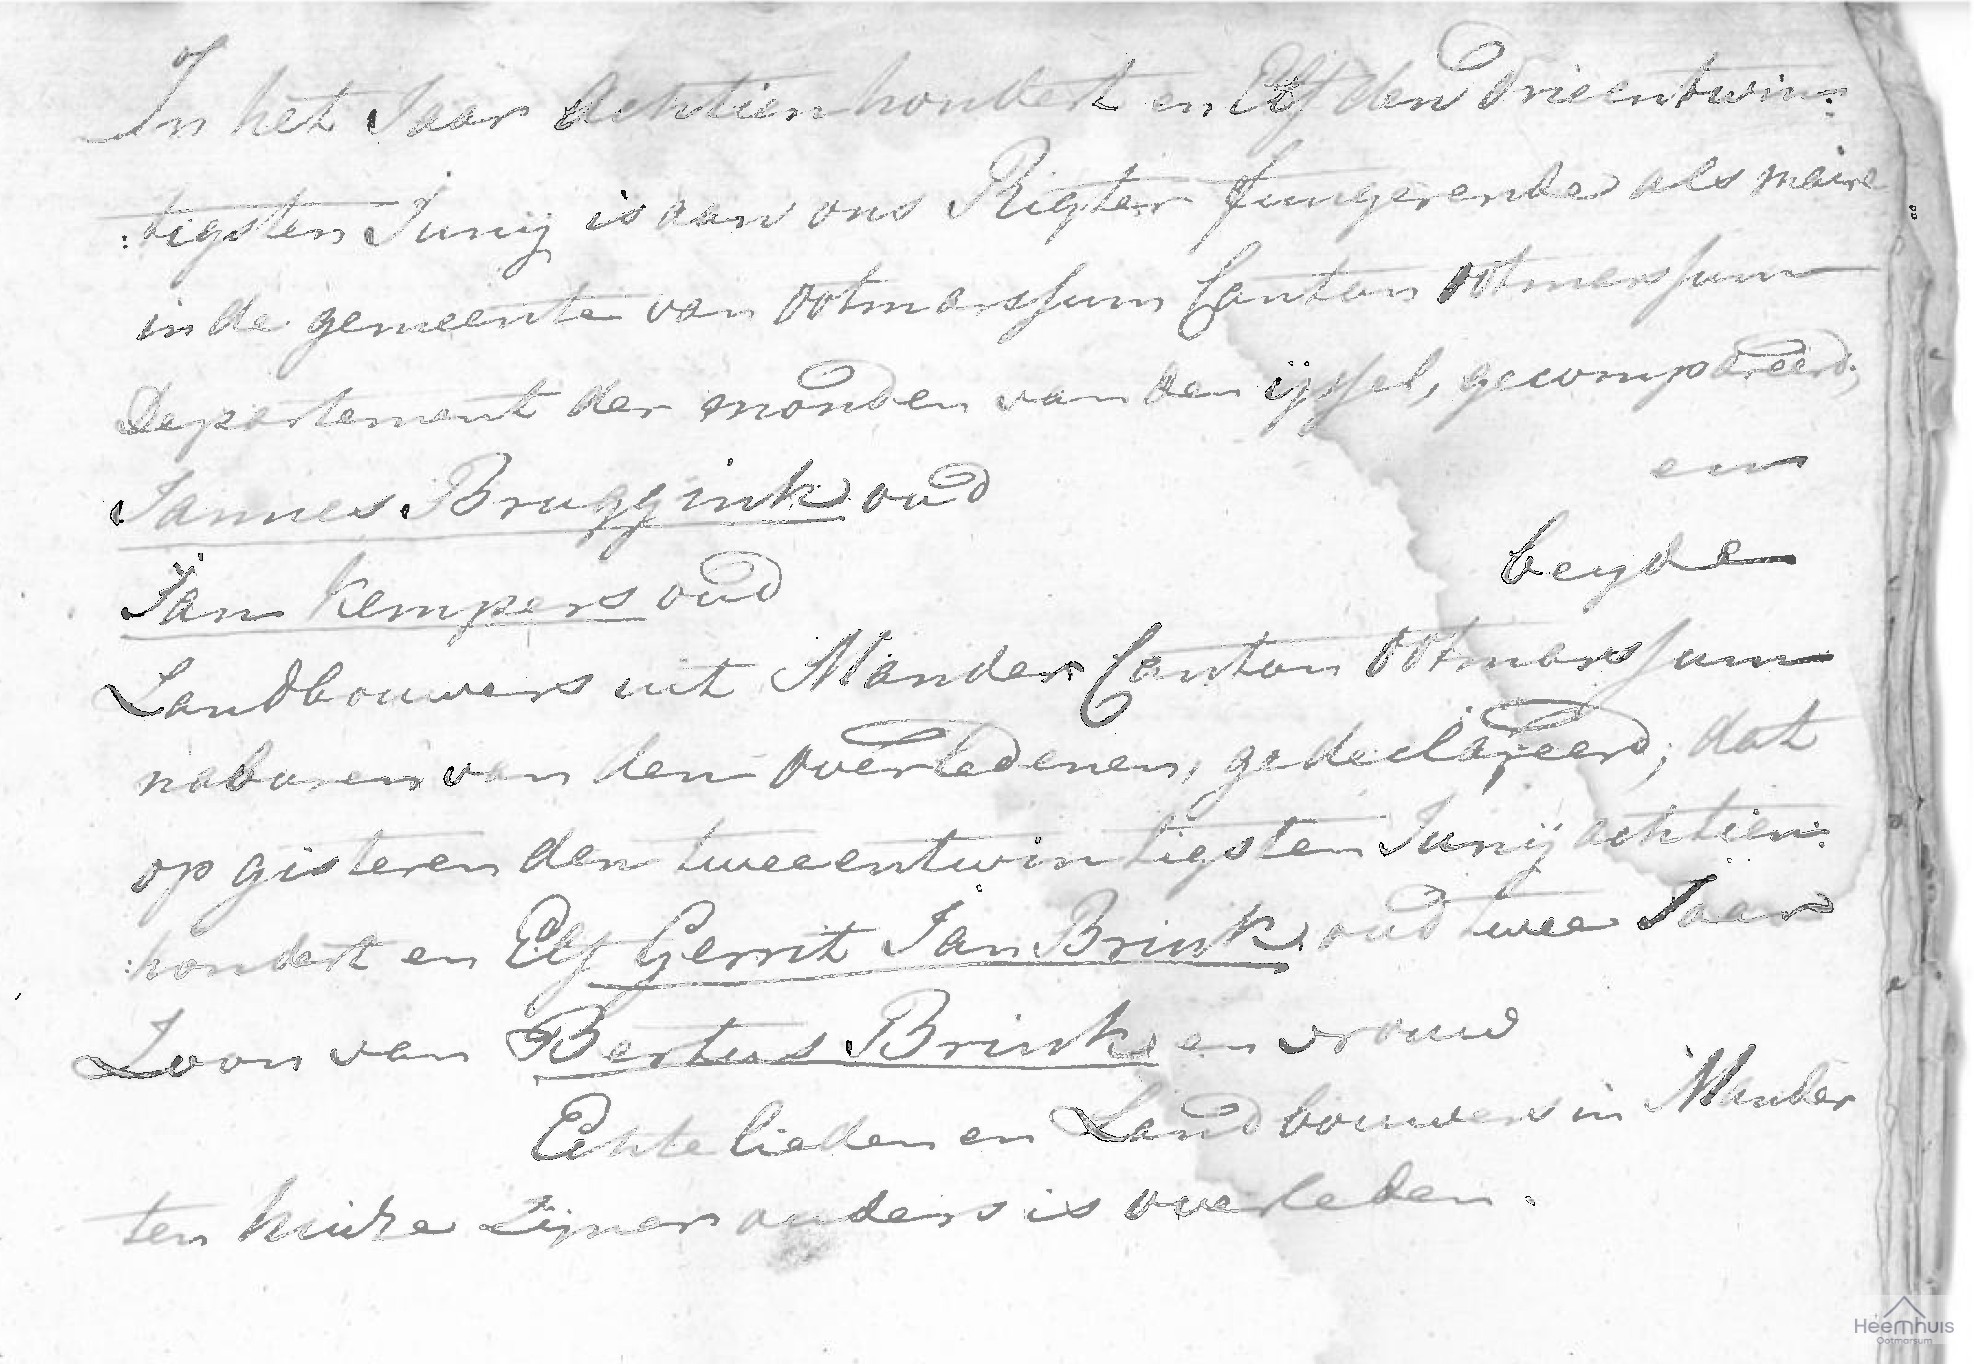 In het Jaar Achtienhondert en Elf den Drieentwin:
:tigsten Junij is aan ons Rigter fungerende als maire
in de gemeente van Ootmarssum Canton Ootmerssum
Departement der monden van den ijssel, gecompareerd,
Jannes Bruggink oud en
Jan Kempers oud beyde
Landbouwers uit Mander Canton Ootmarssum
naburen van den overledenen, gedeclareerd; dat
op gisteren den tweeentwintigsten Junij achtien:
:hondert en Elf Gerrit Jan Brink oud twee Jaar
Zoon van Bertus Brink en vrouw
Echte lieden en Landbouwers in Mander
ten huize zijner ouders is overleden.
Heemhuis
Ootmarsum